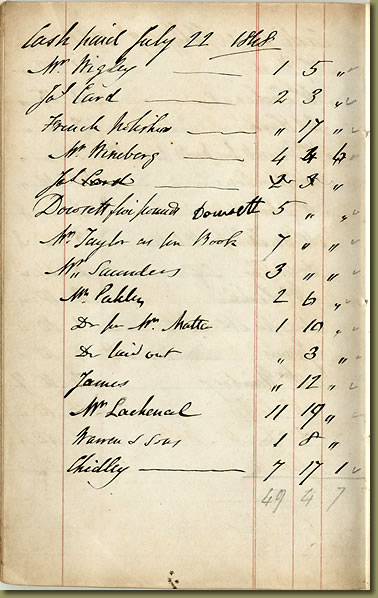 Cash paid July 22 1868
Mr Wigley —— 1 5 „
Jos Card —— 2 3 „
French Polisher —— „ 17 „
Mr Wineberg —— 4 4 4
Jos Card 2 3 „
Dowsett five pounds Dowsett 5 „ „
Mr Taylor as per Book 7 „ „
Mr Saunders 3 „ „
Mr 2 6 „
Do for Mr 1 10 „
Do laid out „ 3 „
James „ 12 „
Mr Lachenal 11 19 „
Warren & Sons 1 8 „
Chidley —— 7 17 1
49 4 7